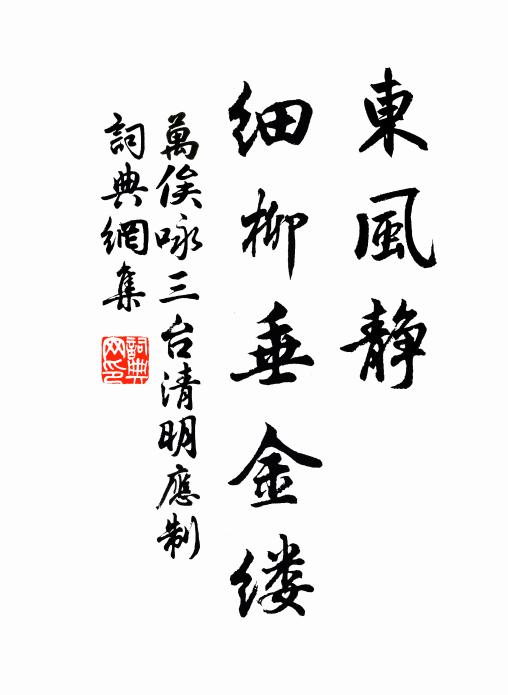 東風静
细柳垂金缕
萬俟咏三台清明應制
詞典網集
詞典网印